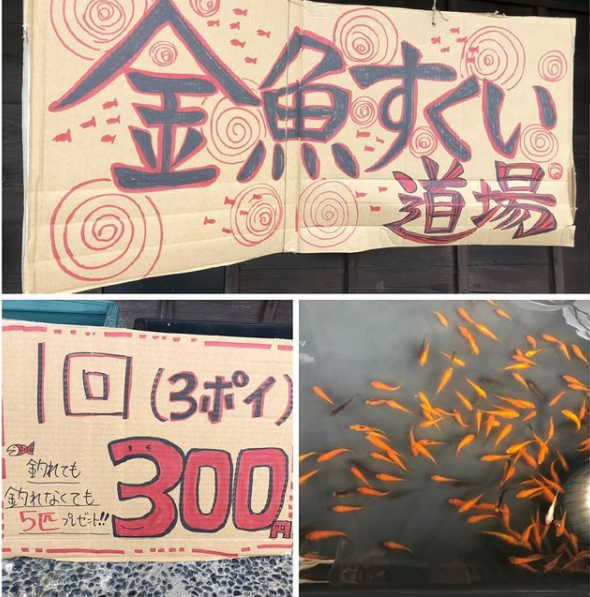 金魚すくい
道場
1回(3ポイ)
300円
釣れても
釣れなくても
5匹プレゼント!!